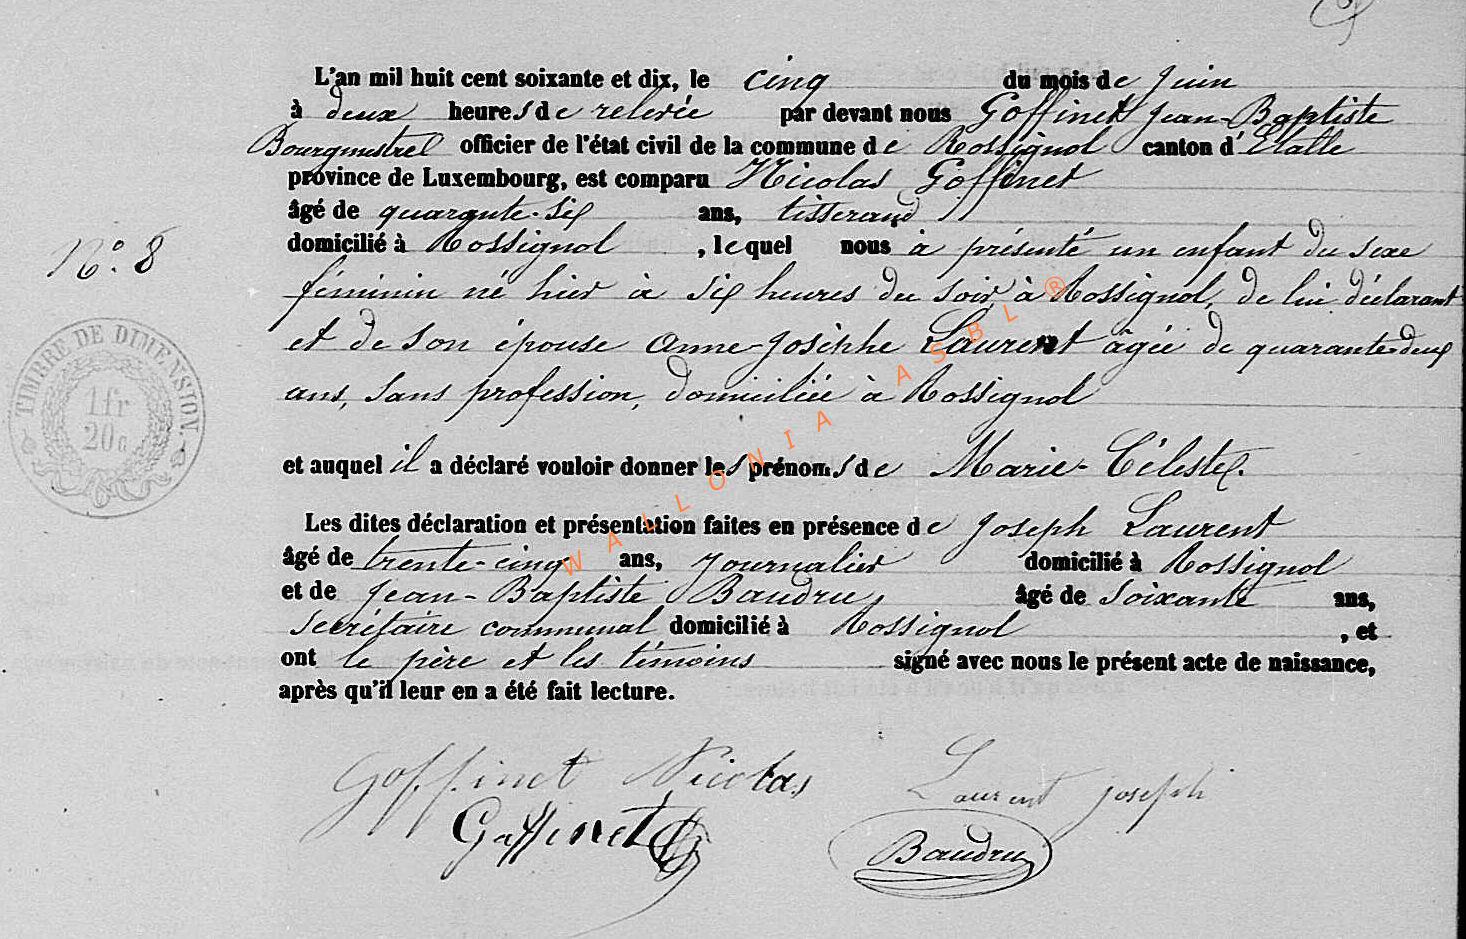 L'an mil huit cent soixante et dix, le cinq du mois de Juin
à deux heures de relevée par devant nous Goffinet Jean-Baptiste
Bourgmestre officier de l'état civil de la commune de Rossignol canton d'Etalle
province de Luxembourg, est comparu Nicolas Goffinet
âgé de quarante-six ans, tisserand
domicilié à Rossignol, lequel nous à présenté un enfant du sexe
N° 8
féminin né hier à six heures du soir à Rossignol, de lui déclarant
et de son épouse Anne-Josèphe Laurent âgée de quarante-deux
ans, sans profession, domiciliée à Rossignol
TIMBRE DE DIMENSION.
1 fr
20 c
et auquel il a déclaré vouloir donner les prénoms de Marie-Céleste.
Les dites déclaration et présentation faites en présence de Joseph Laurent
âgé de trente-cinq ans, journalier domicilié à Rossignol
et de Jean-Baptiste Baudru, âgé de soixante ans,
secrétaire communal domicilié à Rossignol, et
ont le père et les témoins signé avec nous le présent acte de naissance,
après qu'il leur en a été fait lecture.
Goffinet Nicolas Laurent joseph
Goffinet Baudru
WALLONIA ASBL ®